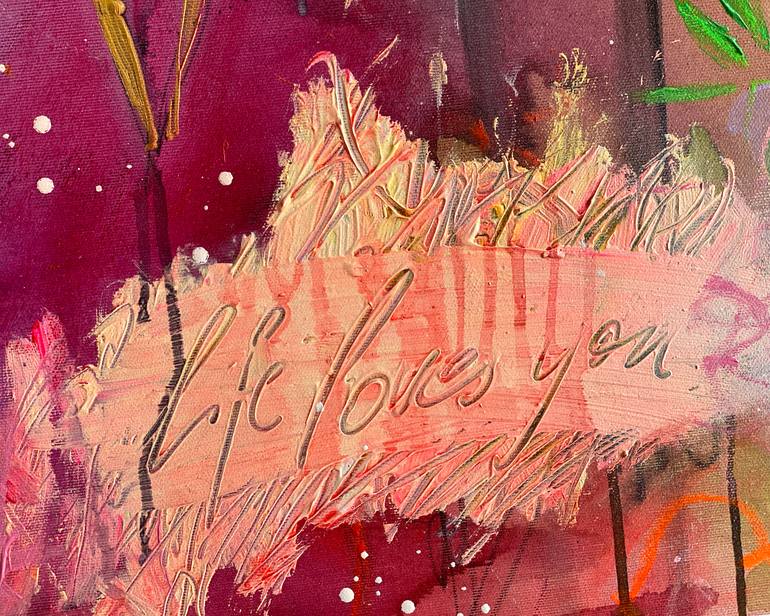 Life loves you